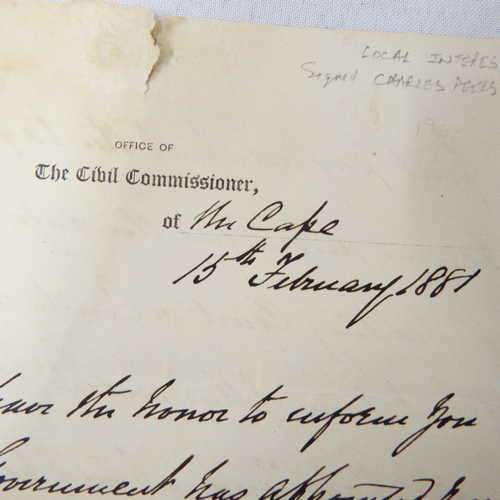 LOCAL INTERES
Signed CHARLES PEERS
OFFICE OF
The Civil Commissioner,
of the Cape
15th February 1881
have the honor to inform you
Government has appointed